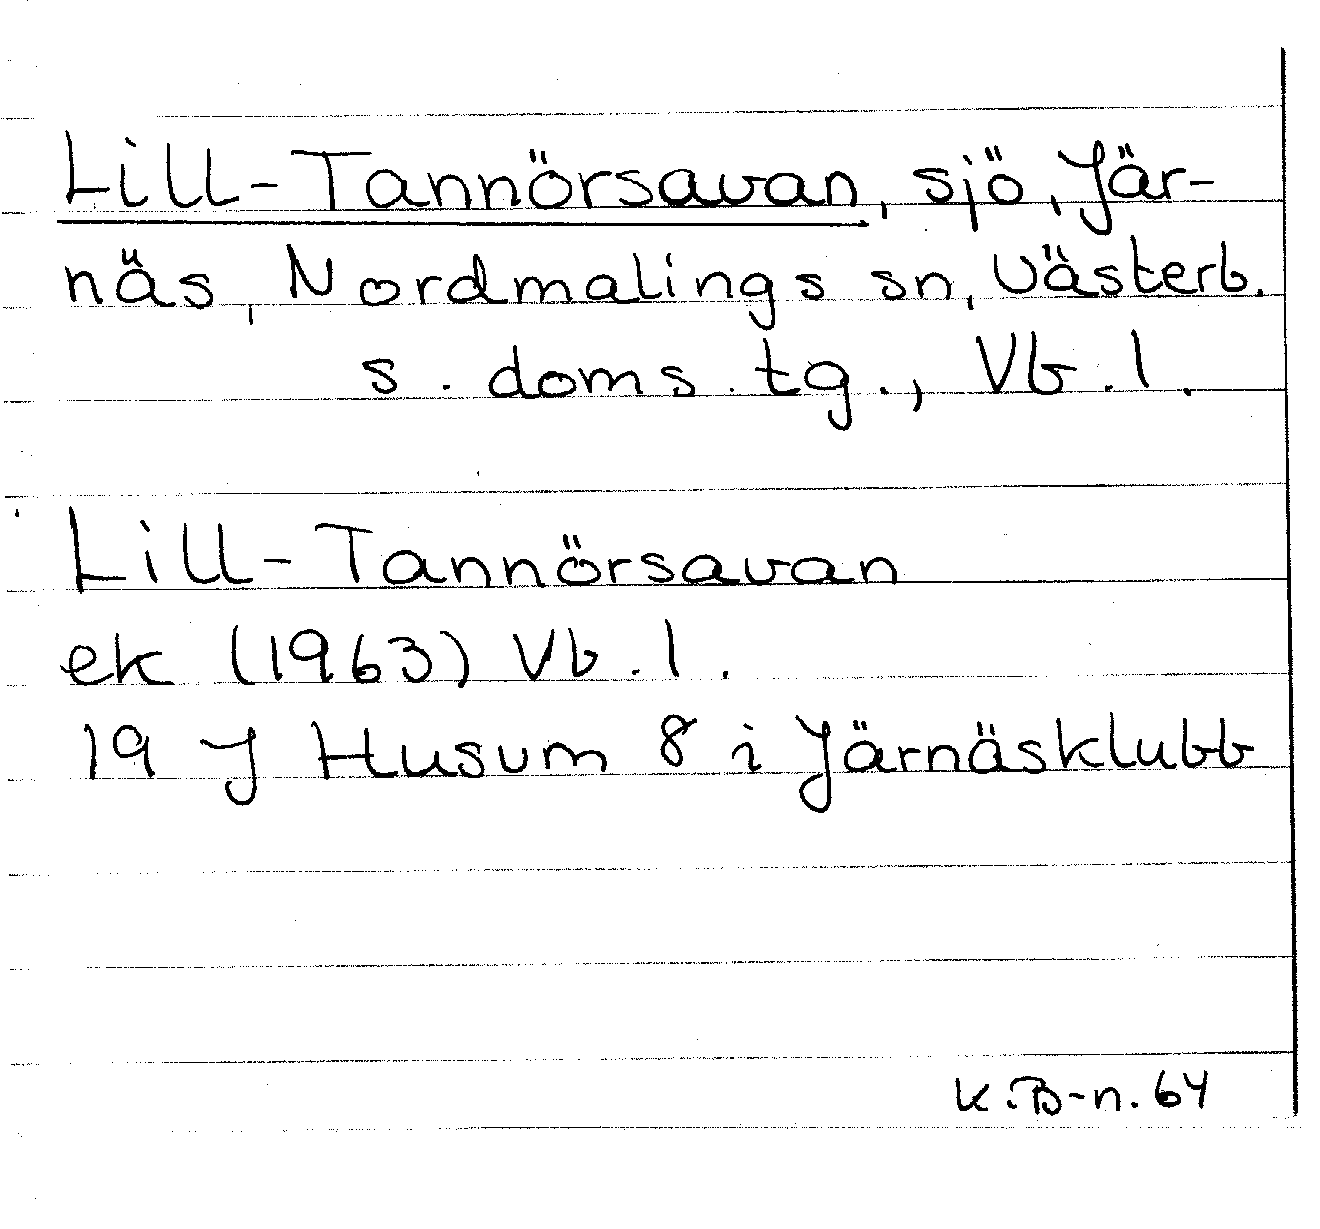 Lill-Tannörsavan, sjö, Jär-
näs, Nordmalings sn, Västerb.
s. doms. tg., Vb. l.
Lill-Tannörsavan
ek (1963) Vb. l.
19 J Husum 8 i Järnäsklubb
K.B-n. 64